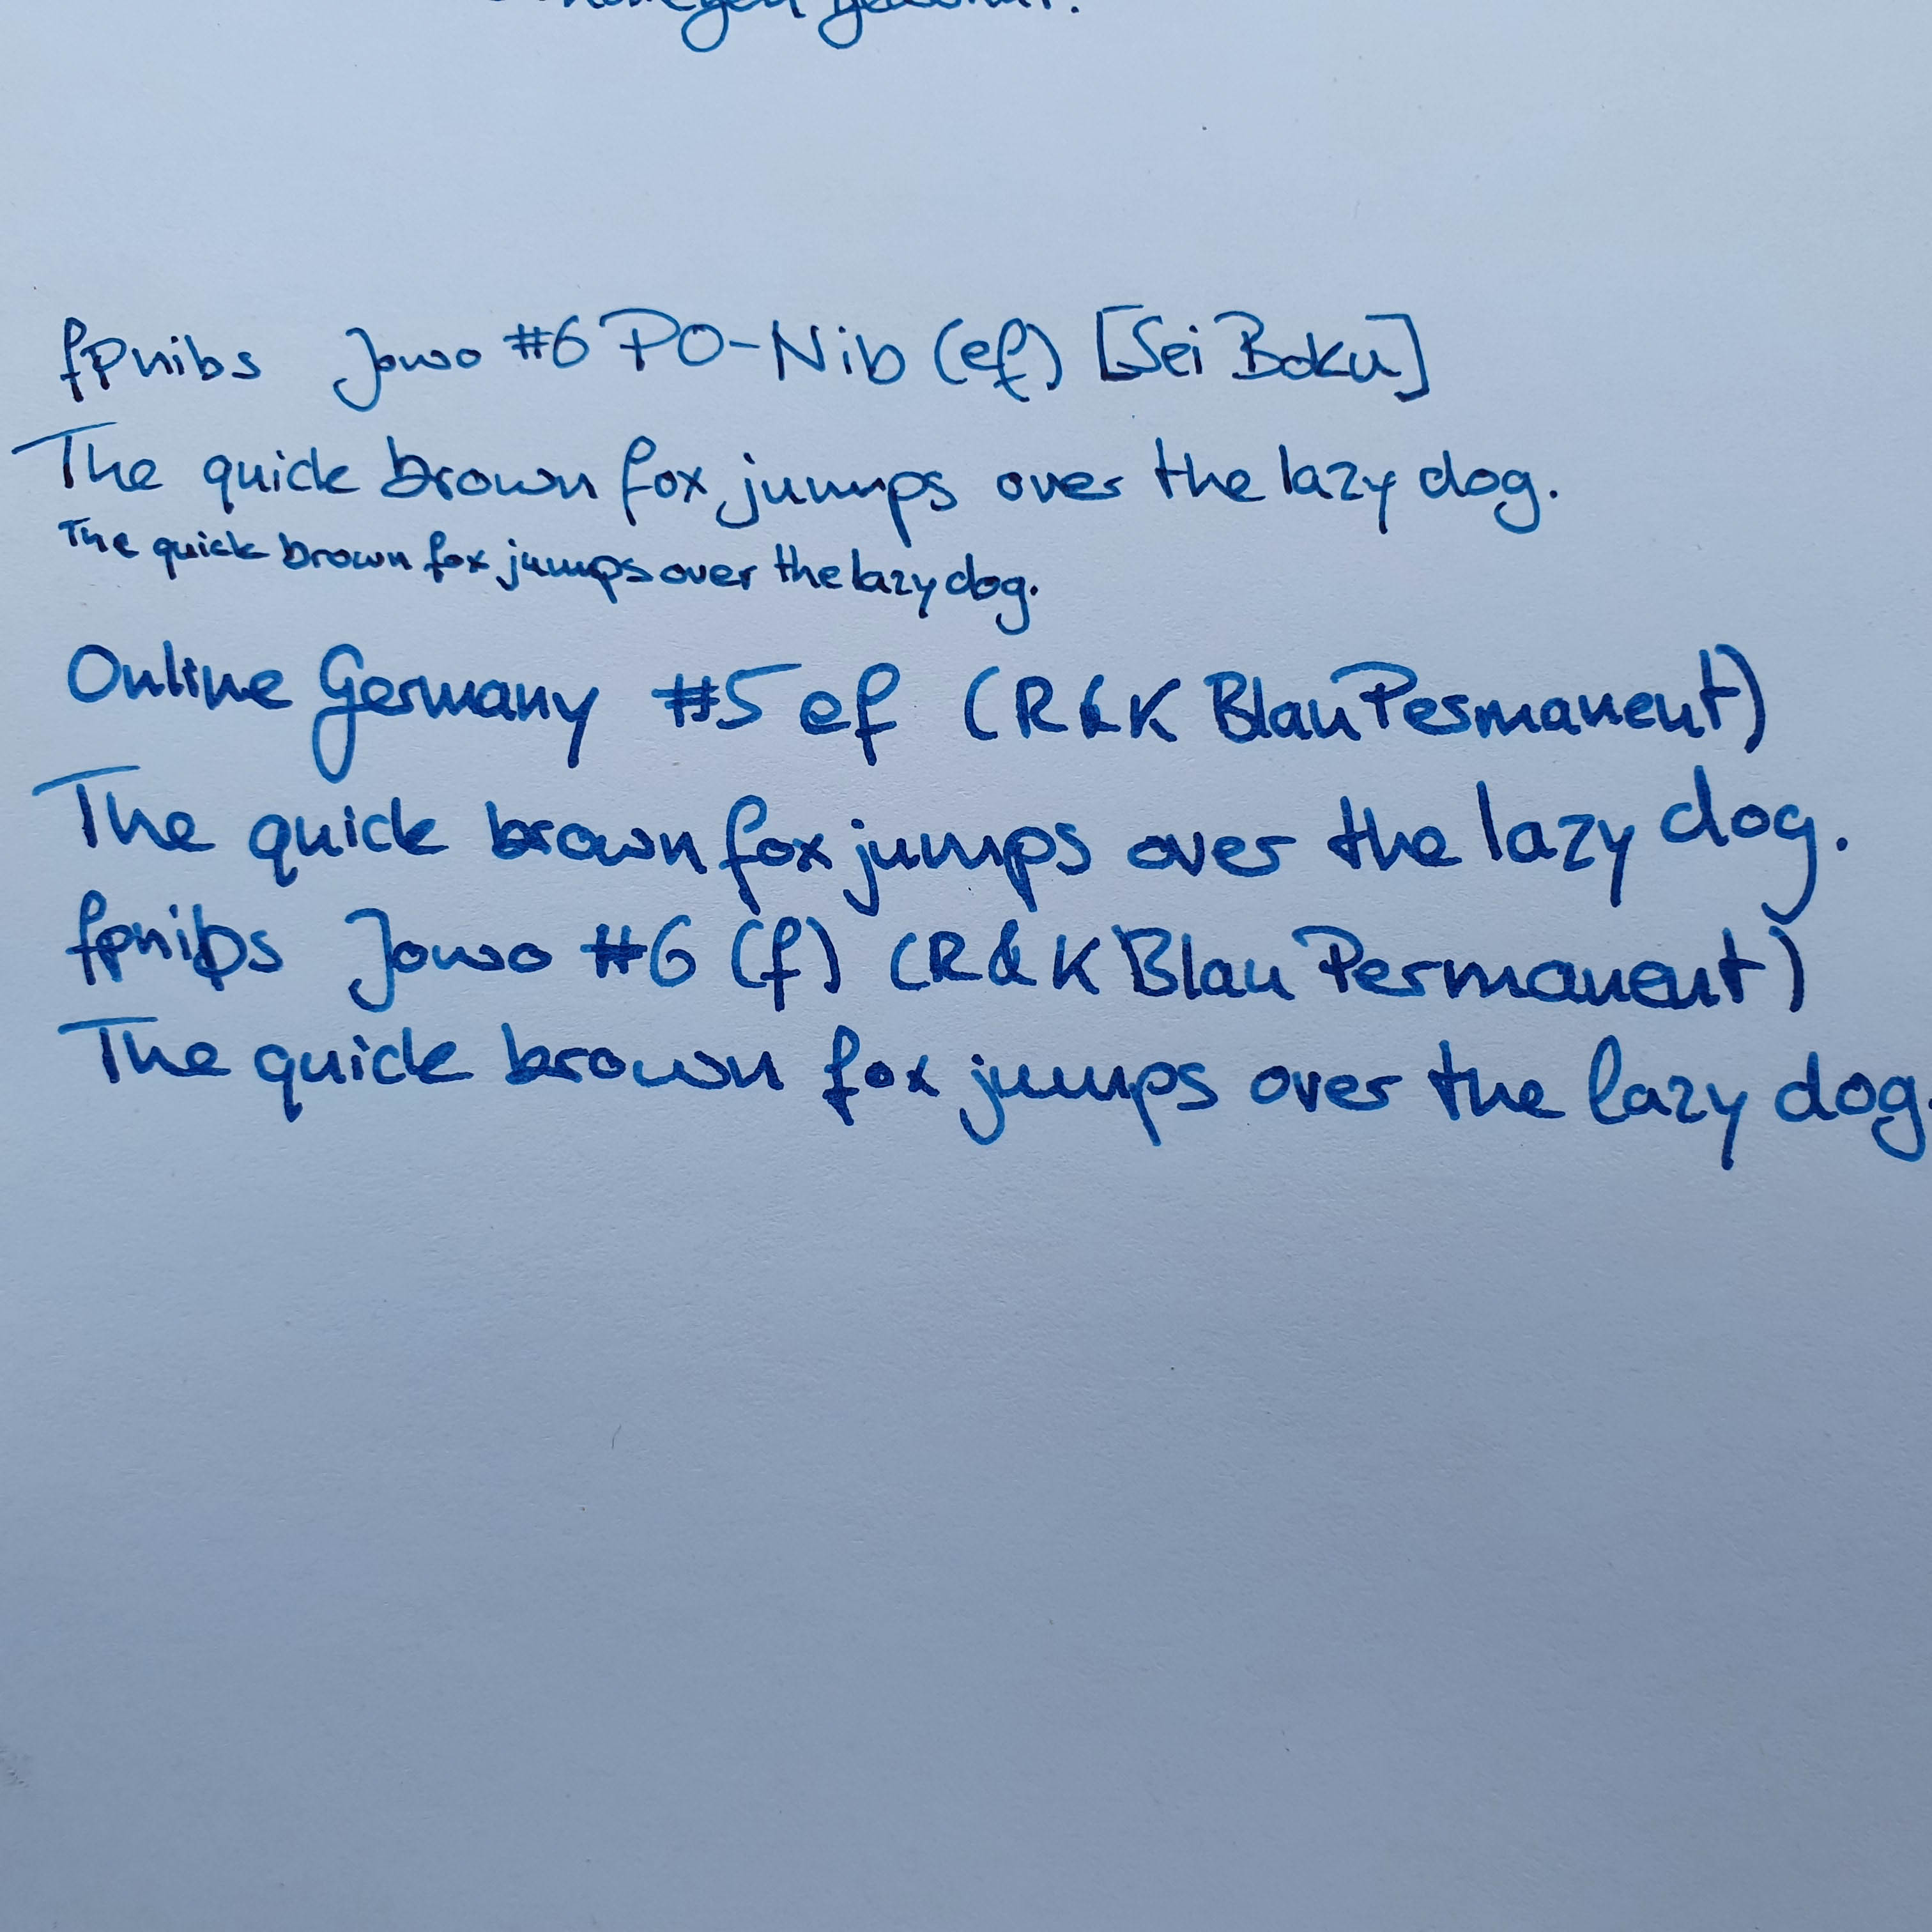 fpnibs Jowo #6 PO-Nib (ef) [Sei Boku]
The quick brown fox jumps over the lazy dog.
The quick brown fox jumps over the lazy dog.
Online Germany #5 ef (R&K Blau Permanent)
The quick brown fox jumps over the lazy dog.
fpnibs Jowo #6 (f) (R&K Blau Permanent)
The quick brown fox jumps over the lazy dog.